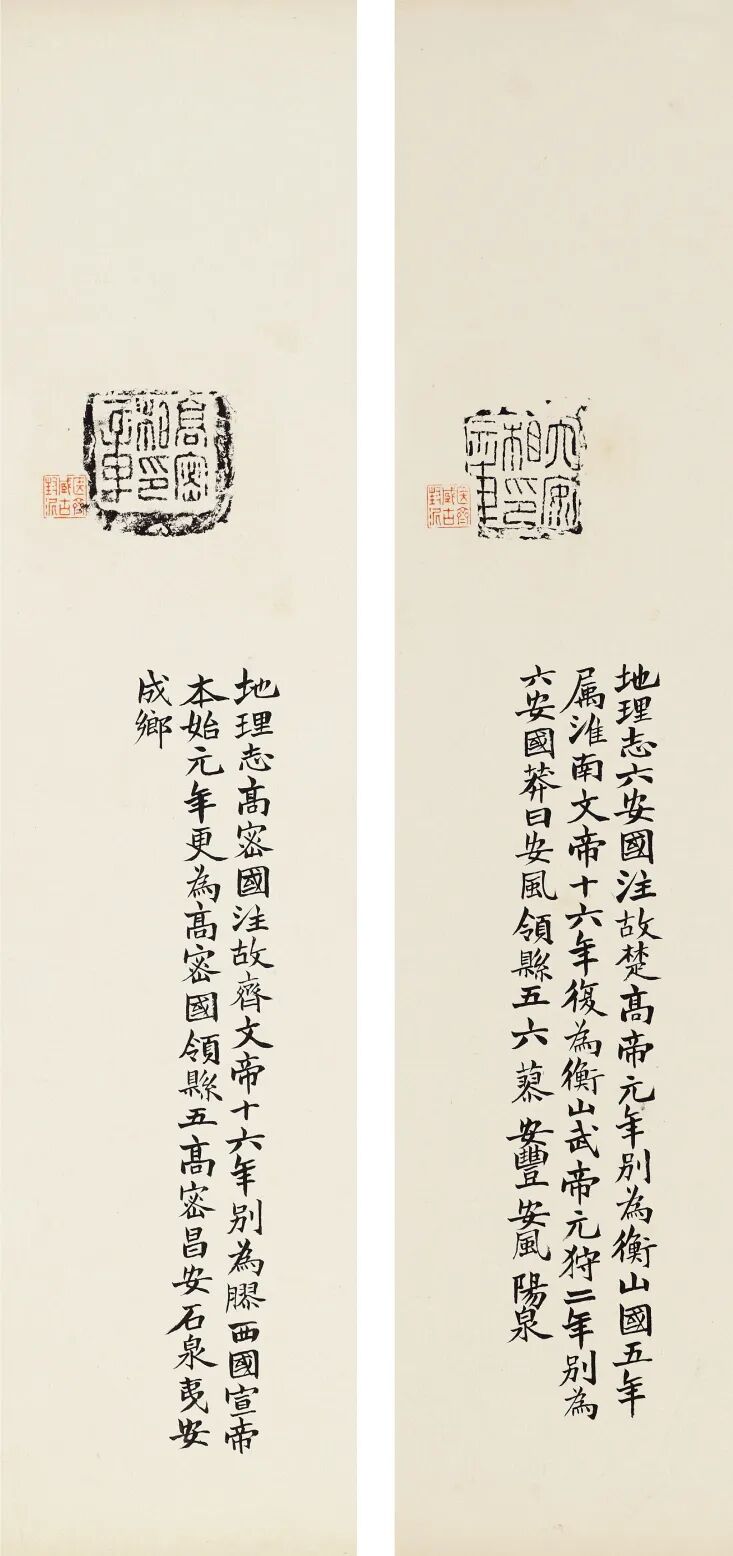 六安
相印
章
齋
藏古
封泥
地理志六安國注故楚高帝元年别為衡山國五年
属淮南文帝十六年復為衡山武帝元狩二年别為
六安國莽曰安風領縣五六蓼安豐安風陽泉
高密
相印
章
齋
藏古
封泥
地理志高密國注故齊文帝十六年别為膠西國宣帝
本始元年更為高密國領縣五高密昌安石泉夷安
成鄉